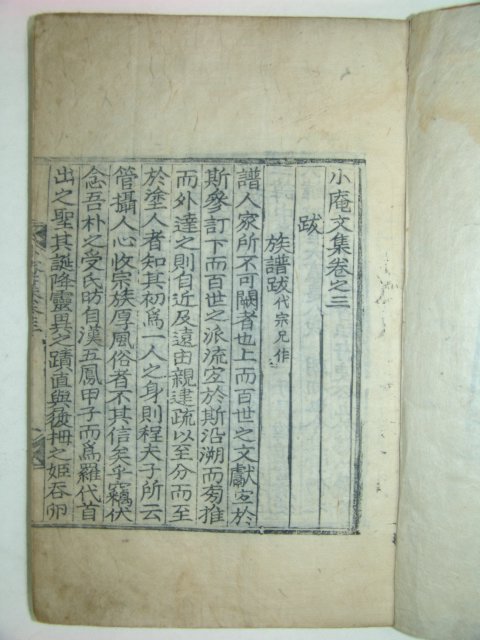 小庵文集卷之三
跋
族譜跋代宗兄作
譜人家所不可闕者也上而百世之文獻㝎於
斯參訂下而百世之派流㝎於斯沿溯而旁推
而外達之則自近及遠由親逮疏以至分而至
於塗人者知其初爲一人之身則程夫子所云
管攝人心收宗族厚風俗者不其信矣乎竊伏
念吾朴之受氏昉自漢五鳳甲子而爲羅代首
出之聖其誕降靈異之蹟直與後拇之姬吞卵